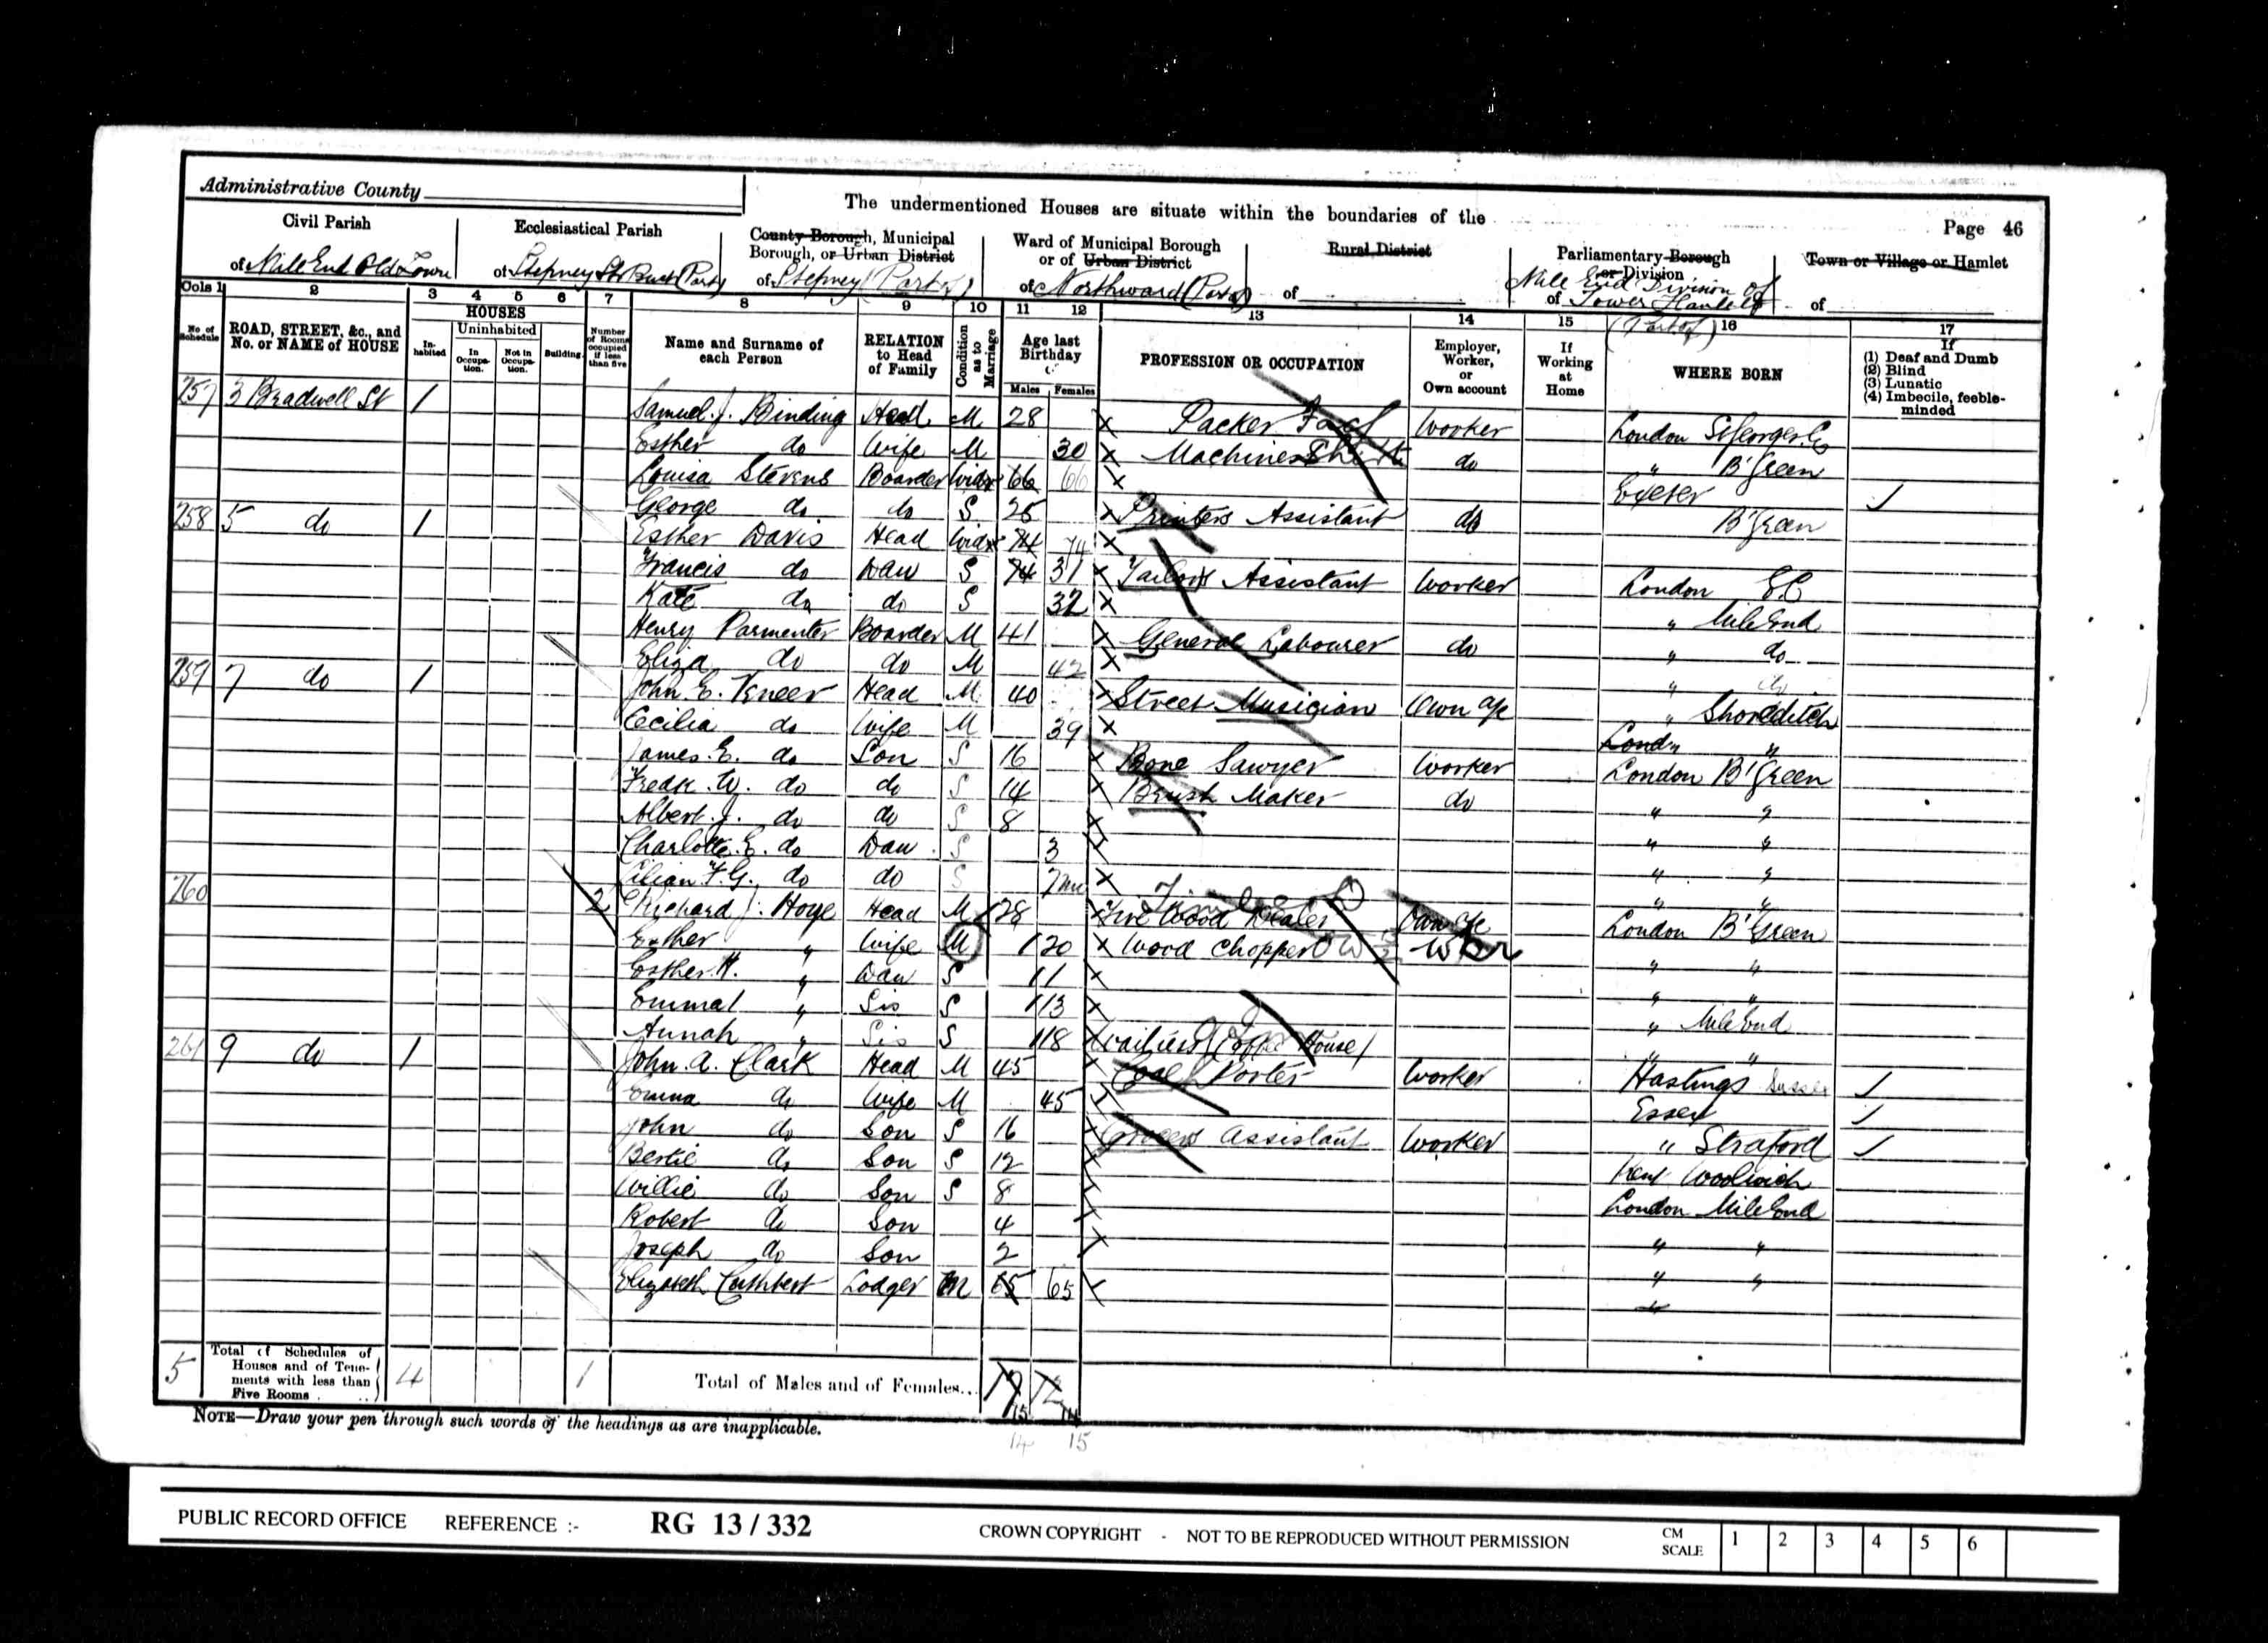 Administrative County
The undermentioned Houses are situate within the boundaries of the
Page 46
Civil Parish
of Mile End Old Town
Ecclesiastical Parish
of Stepney
County Borough, Municipal Borough, or Urban District
of Stepney (Part of)
Ward of Municipal Borough or of Urban District
of Northward (Part of)
Rural District
of
Parliamentary Borough or Division
of Mile End Division of Tower Hamlets (Part of)
Town or Village or Hamlet
of
Cols 1 2 3 4 5 6 7 8 9 10 11 12 13 14 15 16 17
No. of Schedule
ROAD, STREET, &c., and No. or NAME of HOUSE
HOUSES
Inhabited
Uninhabited
In Occupation.
Not in Occupation.
Building.
Number of Rooms occupied if less than five
Name and Surname of each Person
RELATION to Head of Family
Condition as to Marriage
Age last Birthday
Males Females
PROFESSION OR OCCUPATION
Employer, Worker, or Own account
If Working at Home
WHERE BORN
If
(1) Deaf and Dumb
(2) Blind
(3) Lunatic
(4) Imbecile, feeble-minded
257 3 Bradwell St 1 Samuel. J. Binding Head M 28 X Packer Worker London St Georges
Esther do Wife M 30 X Machinest do " B'Green
Louisa Stevens Boarder Widr 66 66 X Exeter
George do do S 25 X Printers Assistant do B'Green
258 5 do 1 Esther Davis Head Widr 74 74 X
Francis do Daw S 74 31 X Tailors Assistant Worker London
Kate do do S 32 X " Mile End
Henry Parmenter Boarder M 41 X General Labourer do " do
Eliza do do M 42 X " do
259 7 do 1 John E. Veneer Head M 40 X Street Musician Own a/c " Shoreditch
Cecilia do Wife M 39 X Lond " "
James. E. do Son S 16 X Bone Sawyer Worker London B'Green
Fredk. W. do do S 14 X Brush Maker do " "
Albert. J. do do S 8 X " "
Charlotte. E. do Daw S 3 X " "
Lilian F. G. do do S 7 X " "
260 2 Richard J. Hoye Head M 28 X Fire Wood Dealer Own a/c London B'Green
Esther " Wife M 20 X Wood Chopper " "
Esther. H. " Daw S 1 X " "
Emma " Sis S 13 X " Mile End
Annah " Sis S 18 X (Coffee House) " "
261 9 do 1 John. A. Clark Head M 45 X Coal Porter Worker Hastings Sussex
Emma do Wife M 45 X Essex
John do Son S 16 X Grocers Assistant Worker " Straford
Bertie do Son S 12 X Kent Woolwich
Willie do Son S 8 X London Mile End
Robert do Son 4 " "
Joseph do Son 2 X " "
Elizabeth Cuthbert Lodger M 65 65 X "
5 Total of Schedules of Houses and of Tenements with less than Five Rooms 4 1 Total of Males and of Females... 15 14
14 15
NOTE—Draw your pen through such words of the headings as are inapplicable.
PUBLIC RECORD OFFICE REFERENCE :- RG 13 / 332 CROWN COPYRIGHT - NOT TO BE REPRODUCED WITHOUT PERMISSION CM SCALE 1 2 3 4 5 6